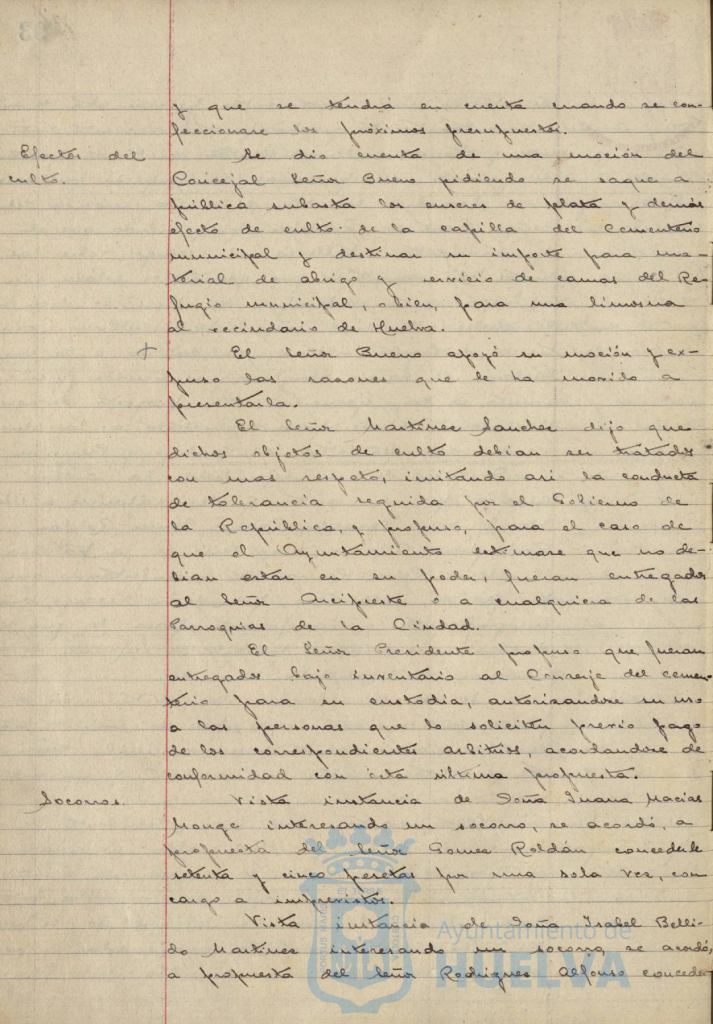 y que se tendrá en cuenta cuando se con-
feccionare los próximos presupuestos.
Efectos del
culto.
Se dio cuenta de una moción del
Concejal Señor Bueno pidiendo se saque a
pública subasta los enseres de plata y demás
efecto de culto de la capilla del Cementerio
municipal y destinar su importe para ma-
terial de abrigo y servicio de camas del Re-
fugio municipal, o bien, para una limosna
al vecindario de Huelva.
+
El Señor Bueno apoyó su moción y ex-
puso las razones que le ha movido a
presentarla.
El Señor Martinez Sanchez dijo que
dichos objetos de culto debian ser tratados
con mas respeto, imitando asi la conducta
de tolerancia seguida por el Gobierno de
la República, y propuso, para el caso de
que el Ayuntamiento estimase que no de-
bian estar en su poder, fueran entregados
al Señor Arcipreste o a cualquiera de las
Parroquias de la Ciudad.
El Señor Presidente propuso que fueran
entregados bajo inventario al Conserje del cemen-
terio para su custodia, autorizandose su uso
a las personas que lo soliciten previo pago
de los correspondientes arbitrios, acordandose de
conformidad con esta última propuesta.
Socorros.
Vista instancia de Doña Juana Macias
Monge interesando un socorro, se acordó, a
propuesta del Señor Gomez Roldán concederle
setenta y cinco pesetas por una sola vez, con
cargo a imprevistos.
Vista instancia de Doña Isabel Belli-
do Martinez interesando un socorro, se acordó,
a propuesta del Señor Rodriguez Alfonso conceder
Ayuntamiento de
HUELVA